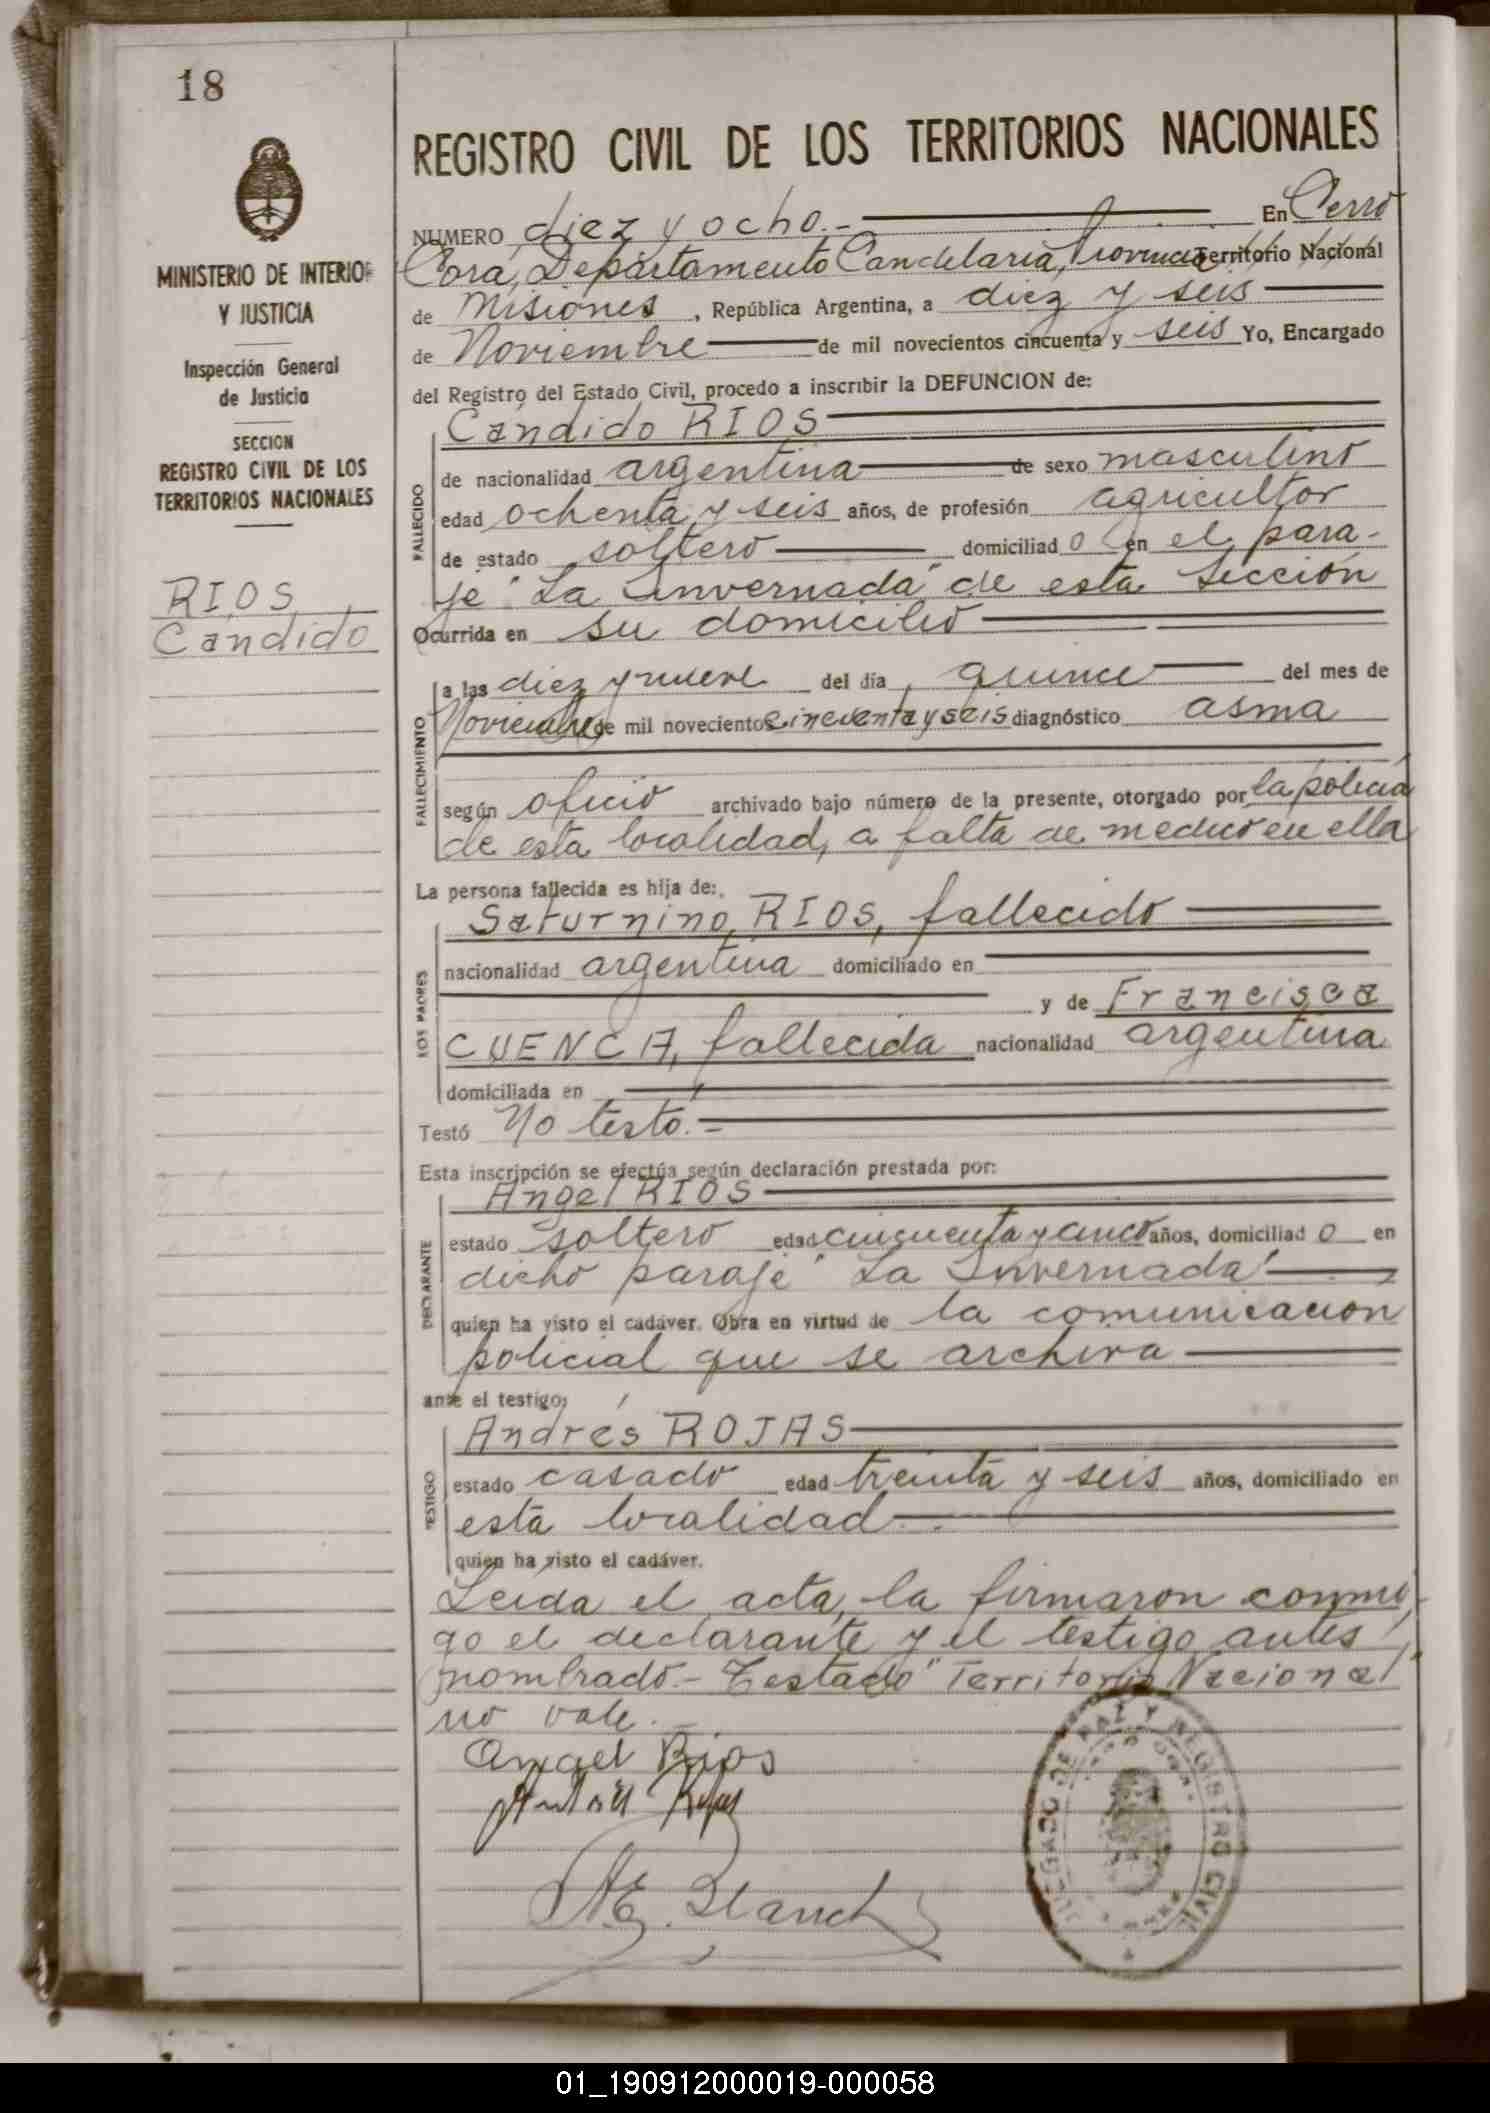 18
MINISTERIO DE INTERIOR
Y JUSTICIA
Inspección General
de Justicia
SECCION
REGISTRO CIVIL DE LOS
TERRITORIOS NACIONALES
RIOS
Cándido
REGISTRO CIVIL DE LOS TERRITORIOS NACIONALES
NUMERO diez y ocho.- En Cerro
Corá, Departamento Candelaria, Provincia Territorio Nacional
de Misiones, República Argentina, a diez y seis
de Noviembre de mil novecientos cincuenta y seis Yo, Encargado
del Registro del Estado Civil, procedo a inscribir la DEFUNCION de:
Cándido RIOS
FALLECIDO
de nacionalidad argentina de sexo masculino
edad ochenta y seis años, de profesión agricultor
de estado soltero domiciliado en el para-
je "La Invernada" de esta sección
Ocurrida en su domicilio
FALLECIMIENTO
a las diez y nueve del día quince del mes de
Noviembre de mil novecientos cincuenta y seis diagnóstico asma
según oficio archivado bajo número de la presente, otorgado por la policía
de esta localidad, a falta de medico en ella
La persona fallecida es hija de:
LOS PADRES
Saturnino RIOS, fallecido
nacionalidad argentina domiciliado en
y de Francisca
CUENCA, fallecida nacionalidad argentina
domiciliada en
Testó No testó.-
Esta inscripción se efectúa según declaración prestada por:
DECLARANTE
Angel RIOS
estado soltero edad cincuenta y cinco años, domiciliado en
dicho paraje "La Invernada"
quien ha visto el cadáver. Obra en virtud de la comunicación
policial que se archiva
ante el testigo:
TESTIGO
Andrés ROJAS
estado casado edad treinta y seis años, domiciliado en
esta localidad
quien ha visto el cadáver.
Leida el acta, la firmaron conmi-
go el declarante y el testigo antes
nombrado.- Testado "Territorio Nacional"
no vale.
Angel Rios
Rojas
JUZGADO DE PAZ Y REGISTRO CIVIL
01_190912000019-000058